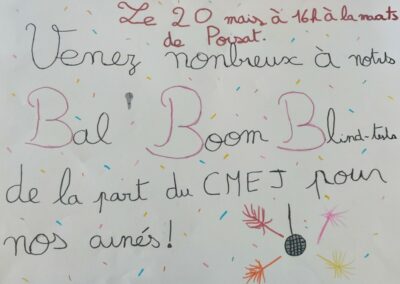 Le 20 mars à 16h à la
de
Venez nonbreux à notre
Bal' Boom Blind-tests
de la part du CMEJ pour
nos ainés!